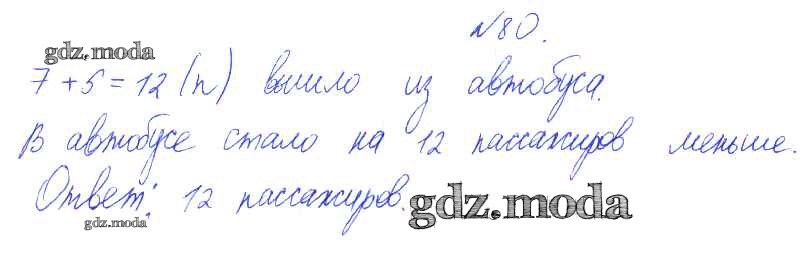 №80.
gdz.moda
7+5=12 (п) вышло из автобуса.
В автобусе стало на 12 пассажиров меньше.
Ответ: 12 пассажиров.
gdz.moda
gdz.moda